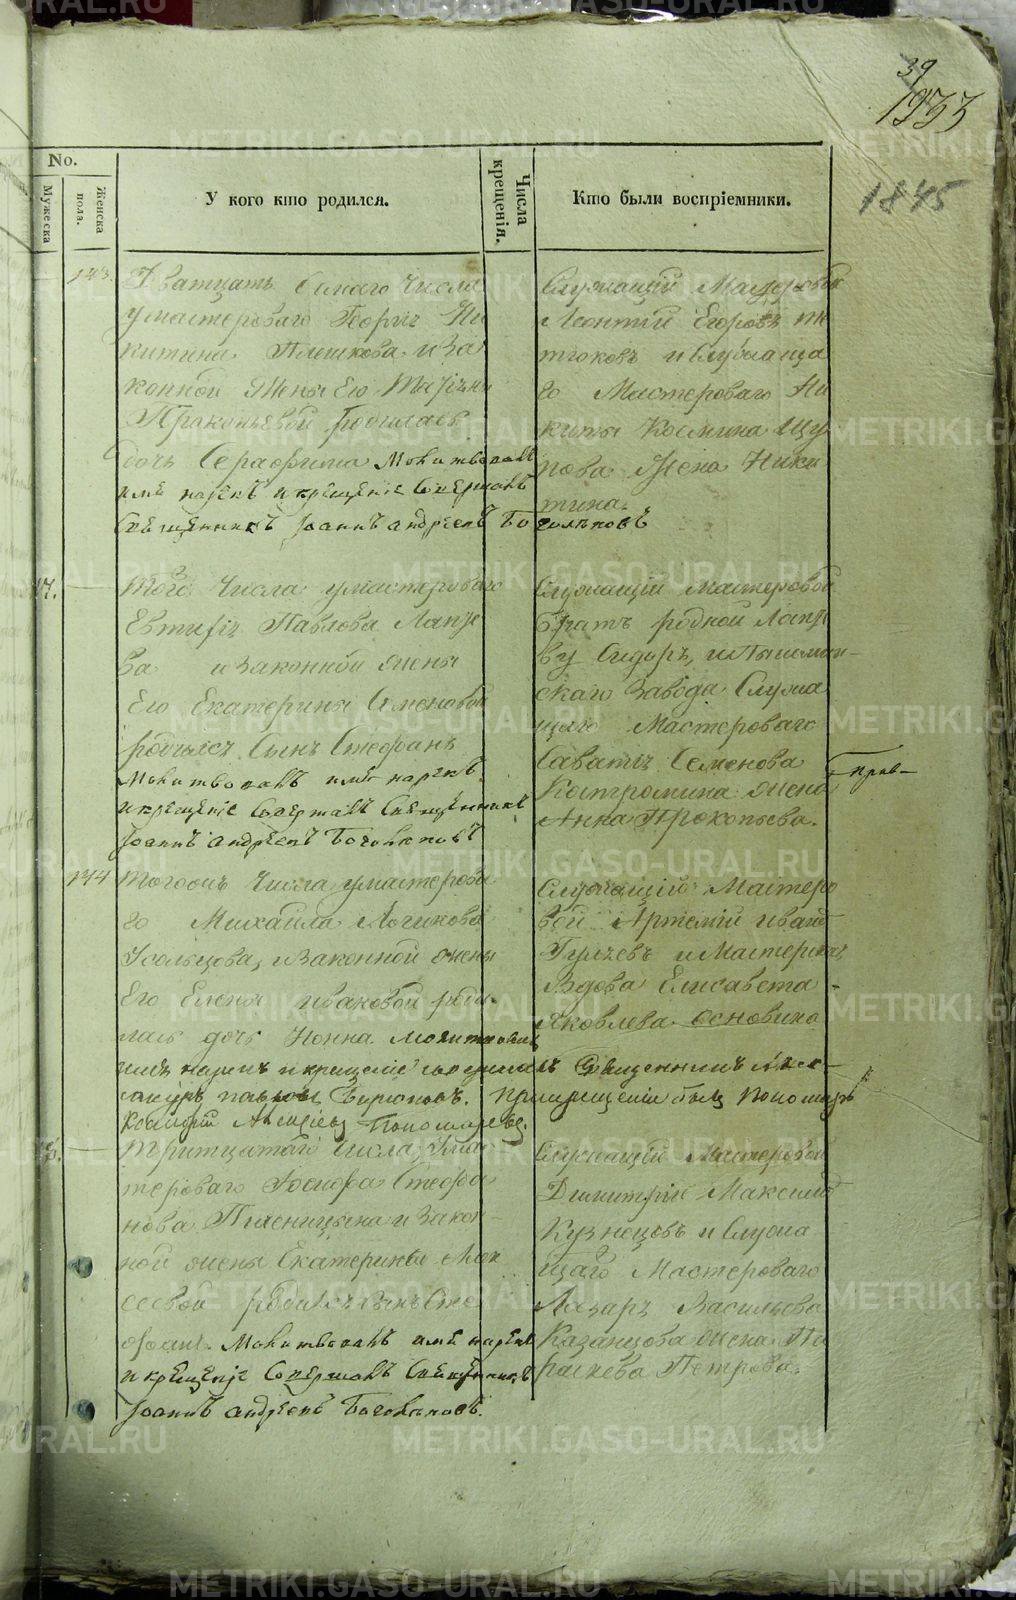 39
1933
1845
No.
Мужеска
Женска
полз.
У кого кто родился.
Числа
крещенія.
Кто были воспріемники.
143.
Дватцать Семаго Числа
умастероваго Георгія Ни
китина Плешкова иЗа
конной Жены Его Татіяны
Прокопьевой Родилась
дочь Серафима Молитвовалъ
имя нарекъ икрещеніе Совершалъ
Священникъ Іоаннъ андреевъ
Служащій Мастеровый
Леонтій Егоровъ
и Служаща
го Мастероваго Ни
киты Космина Щу
пова Жена Ники
тина.
17.
Того Числа умастероваго
Евтифія Павлова Лапте
ва изаконной жены
Его Екатерины Семеновой
родился Сынъ Стефанъ
Молитвовалъ имя нарекъ
икрещеніе Совершалъ Священникъ
Іоаннъ андреевъ
Служащій мастеровой
братъ родной Лапте
ву Сидоръ, и
скаго Завода Служа
щаго Мастероваго
Саватія Семенова
Костромина жена
Анна Прокопьева.
144
Тогожъ Числа умастерова
го Михайла Логинова
Усольцова, изаконной жены
Его Елены ивановой роди
лась дочь Нонна Молитвовалъ
имя нарекъ икрещеніе совершалъ Священникъ Алек
сандръ павловъ Бирюковъ. При крещеніи былъ Пономарь
Алексіевъ Пономаревъ.
Служащій Мастеро
вой Артемій Иванъ
и Мастерская
Вдова Елисавета
Яковлева Основина
Тритцатаго Числа Умас
тероваго Іосифа Стефа
нова Пшеницына и Закон
ной жены Екатерины Мои
сеевой родился Сынъ Сте
фанъ. Молитвовалъ имя нарекъ
икрещеніе Совершалъ Священникъ
Іоаннъ андреевъ
Служащій Мастеровой
Димитрій Максимовъ
Кузнецовъ и Служа
щаго Мастероваго
Лазаря Васильева
Казанцова жена Па
раскева Петрова.
METRIKI.GASO-URAL.RU